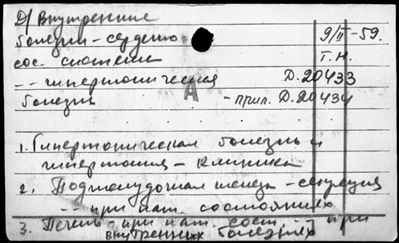 Д/ Внутренние
болезни - сердечно- 9/II - 59.
сос. системы Т.Н.
-- гипертоническая Д. 20433
болезнь - прил. Д. 20434
А
1. Гипертоническая болезнь и
гипертония - клиника
2. Поджелудочная железа - секреция
-- при пат. состояниях
3. Печень - при пат. сост. -- при
внутренних болезнях